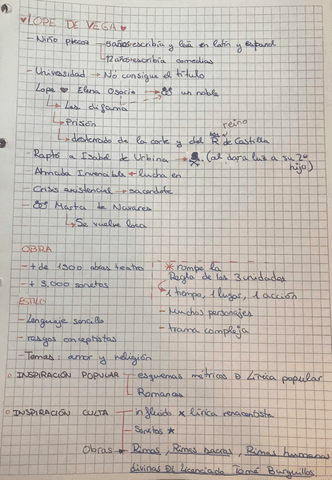 ♥LOPE DE VEGA♥
- Niño precoz → 5 años escribía y leía en latín y español
↳ 12 años escribía comedias
- Universidad → No consigue el título
Lope ♥ Elena Osorio → un noble
↳ Les difama
↳ Prisión
↳ desterrado de la corte y del R de Castilla
reino
- Raptó a Isabel de Urbina → (al dar a luz a su 2º hijo)
Armada Invencible ← lucha en
- Crisis existencial → sacerdote
- Marta de Nevares
↳ Se vuelve loca
OBRA
- + de 1500 obras teatro
* rompe la Regla de las 3 unidades
- + 3,000 sonetos
1 tiempo, 1 lugar, 1 acción
ESTILO
- Muchos personajes
- Lenguaje sencillo
- trama compleja
- rasgos conceptistas
- Temas: amor y religión
○ INSPIRACIÓN POPULAR — esquemas métricos D Lírica popular
Romances
○ INSPIRACIÓN CULTA — influida x lírica renacentista
- Sonetos *
Obras → Rimas, Rimas sacras, Rimas humanas
divinas DL Licenciado Tomé Burguillos